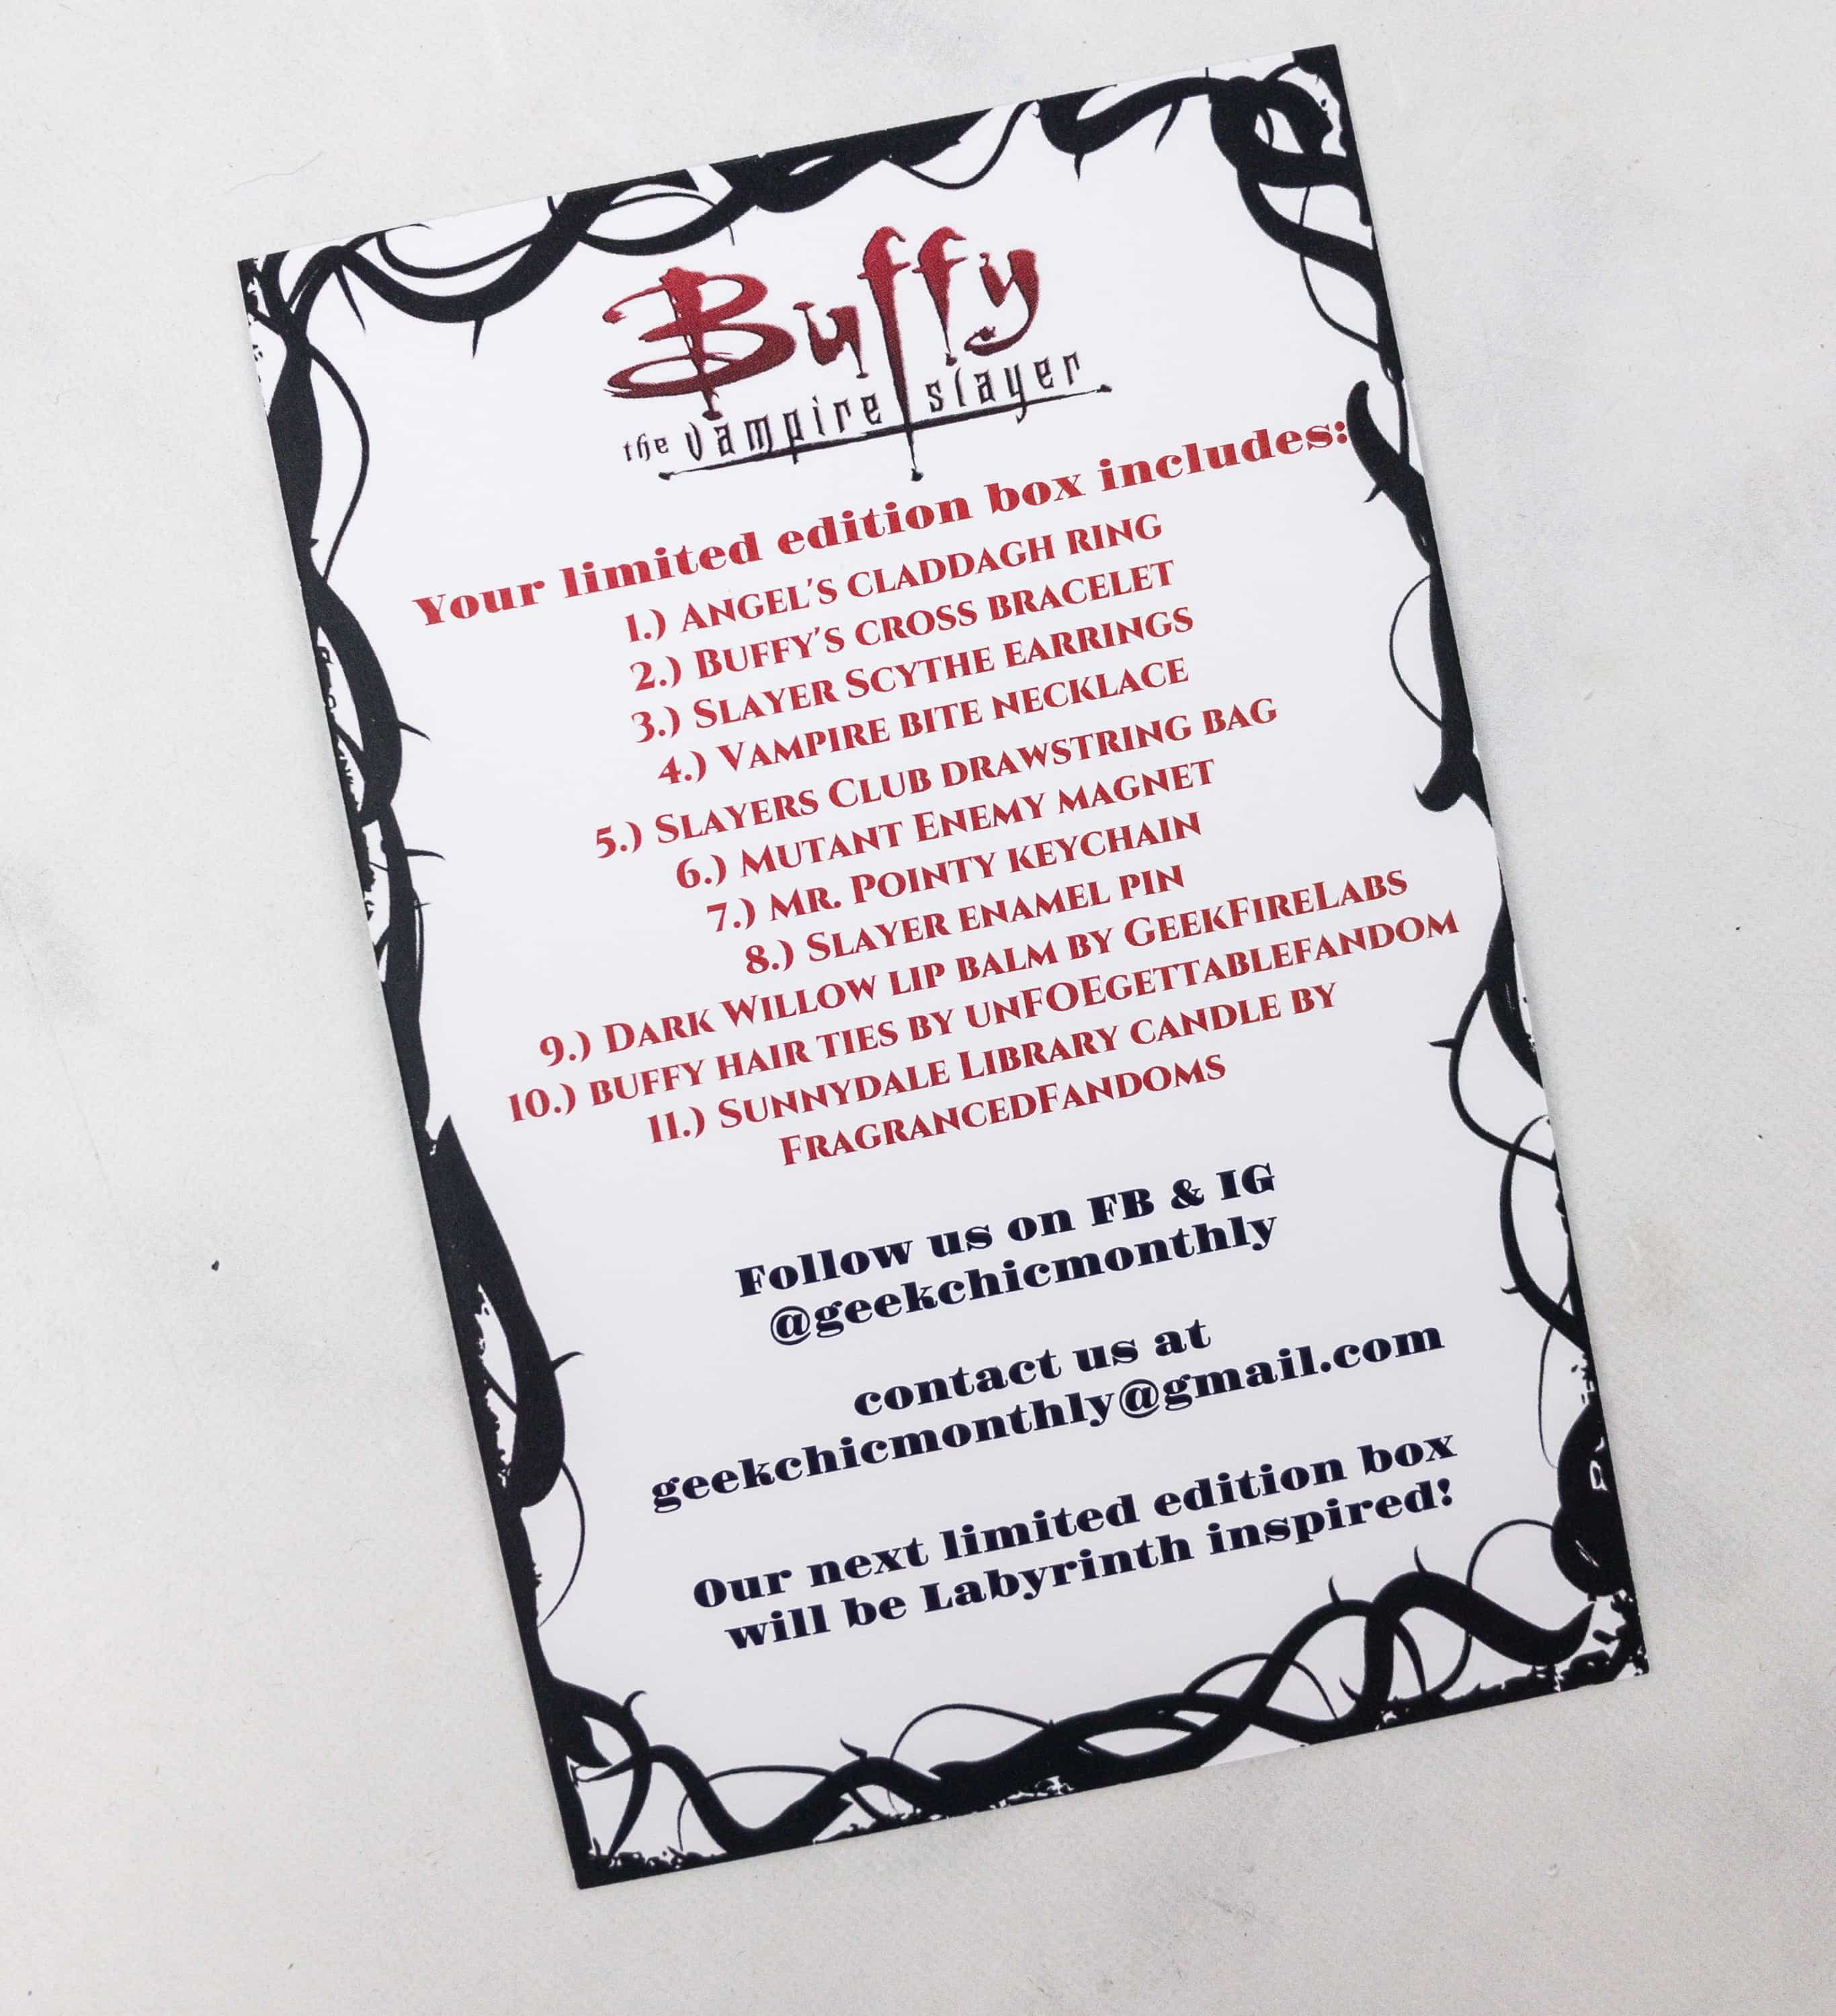 Buffy
the vampire slayer
Your limited edition box includes:
1.) Angel's claddagh ring
2.) Buffy's cross bracelet
3.) Slayer Scythe earrings
4.) Vampire bite necklace
5.) Slayers Club drawstring bag
6.) Mutant Enemy magnet
7.) Mr. Pointy keychain
8.) Slayer enamel pin
9.) Dark Willow lip balm by GeekFireLabs
10.) buffy hair ties by unFOEgettablefandom
11.) Sunnydale Library candle by
FragrancedFandoms
Follow us on FB & IG
@geekchicmonthly
contact us at
geekchicmonthly@gmail.com
Our next limited edition box
will be Labyrinth inspired!